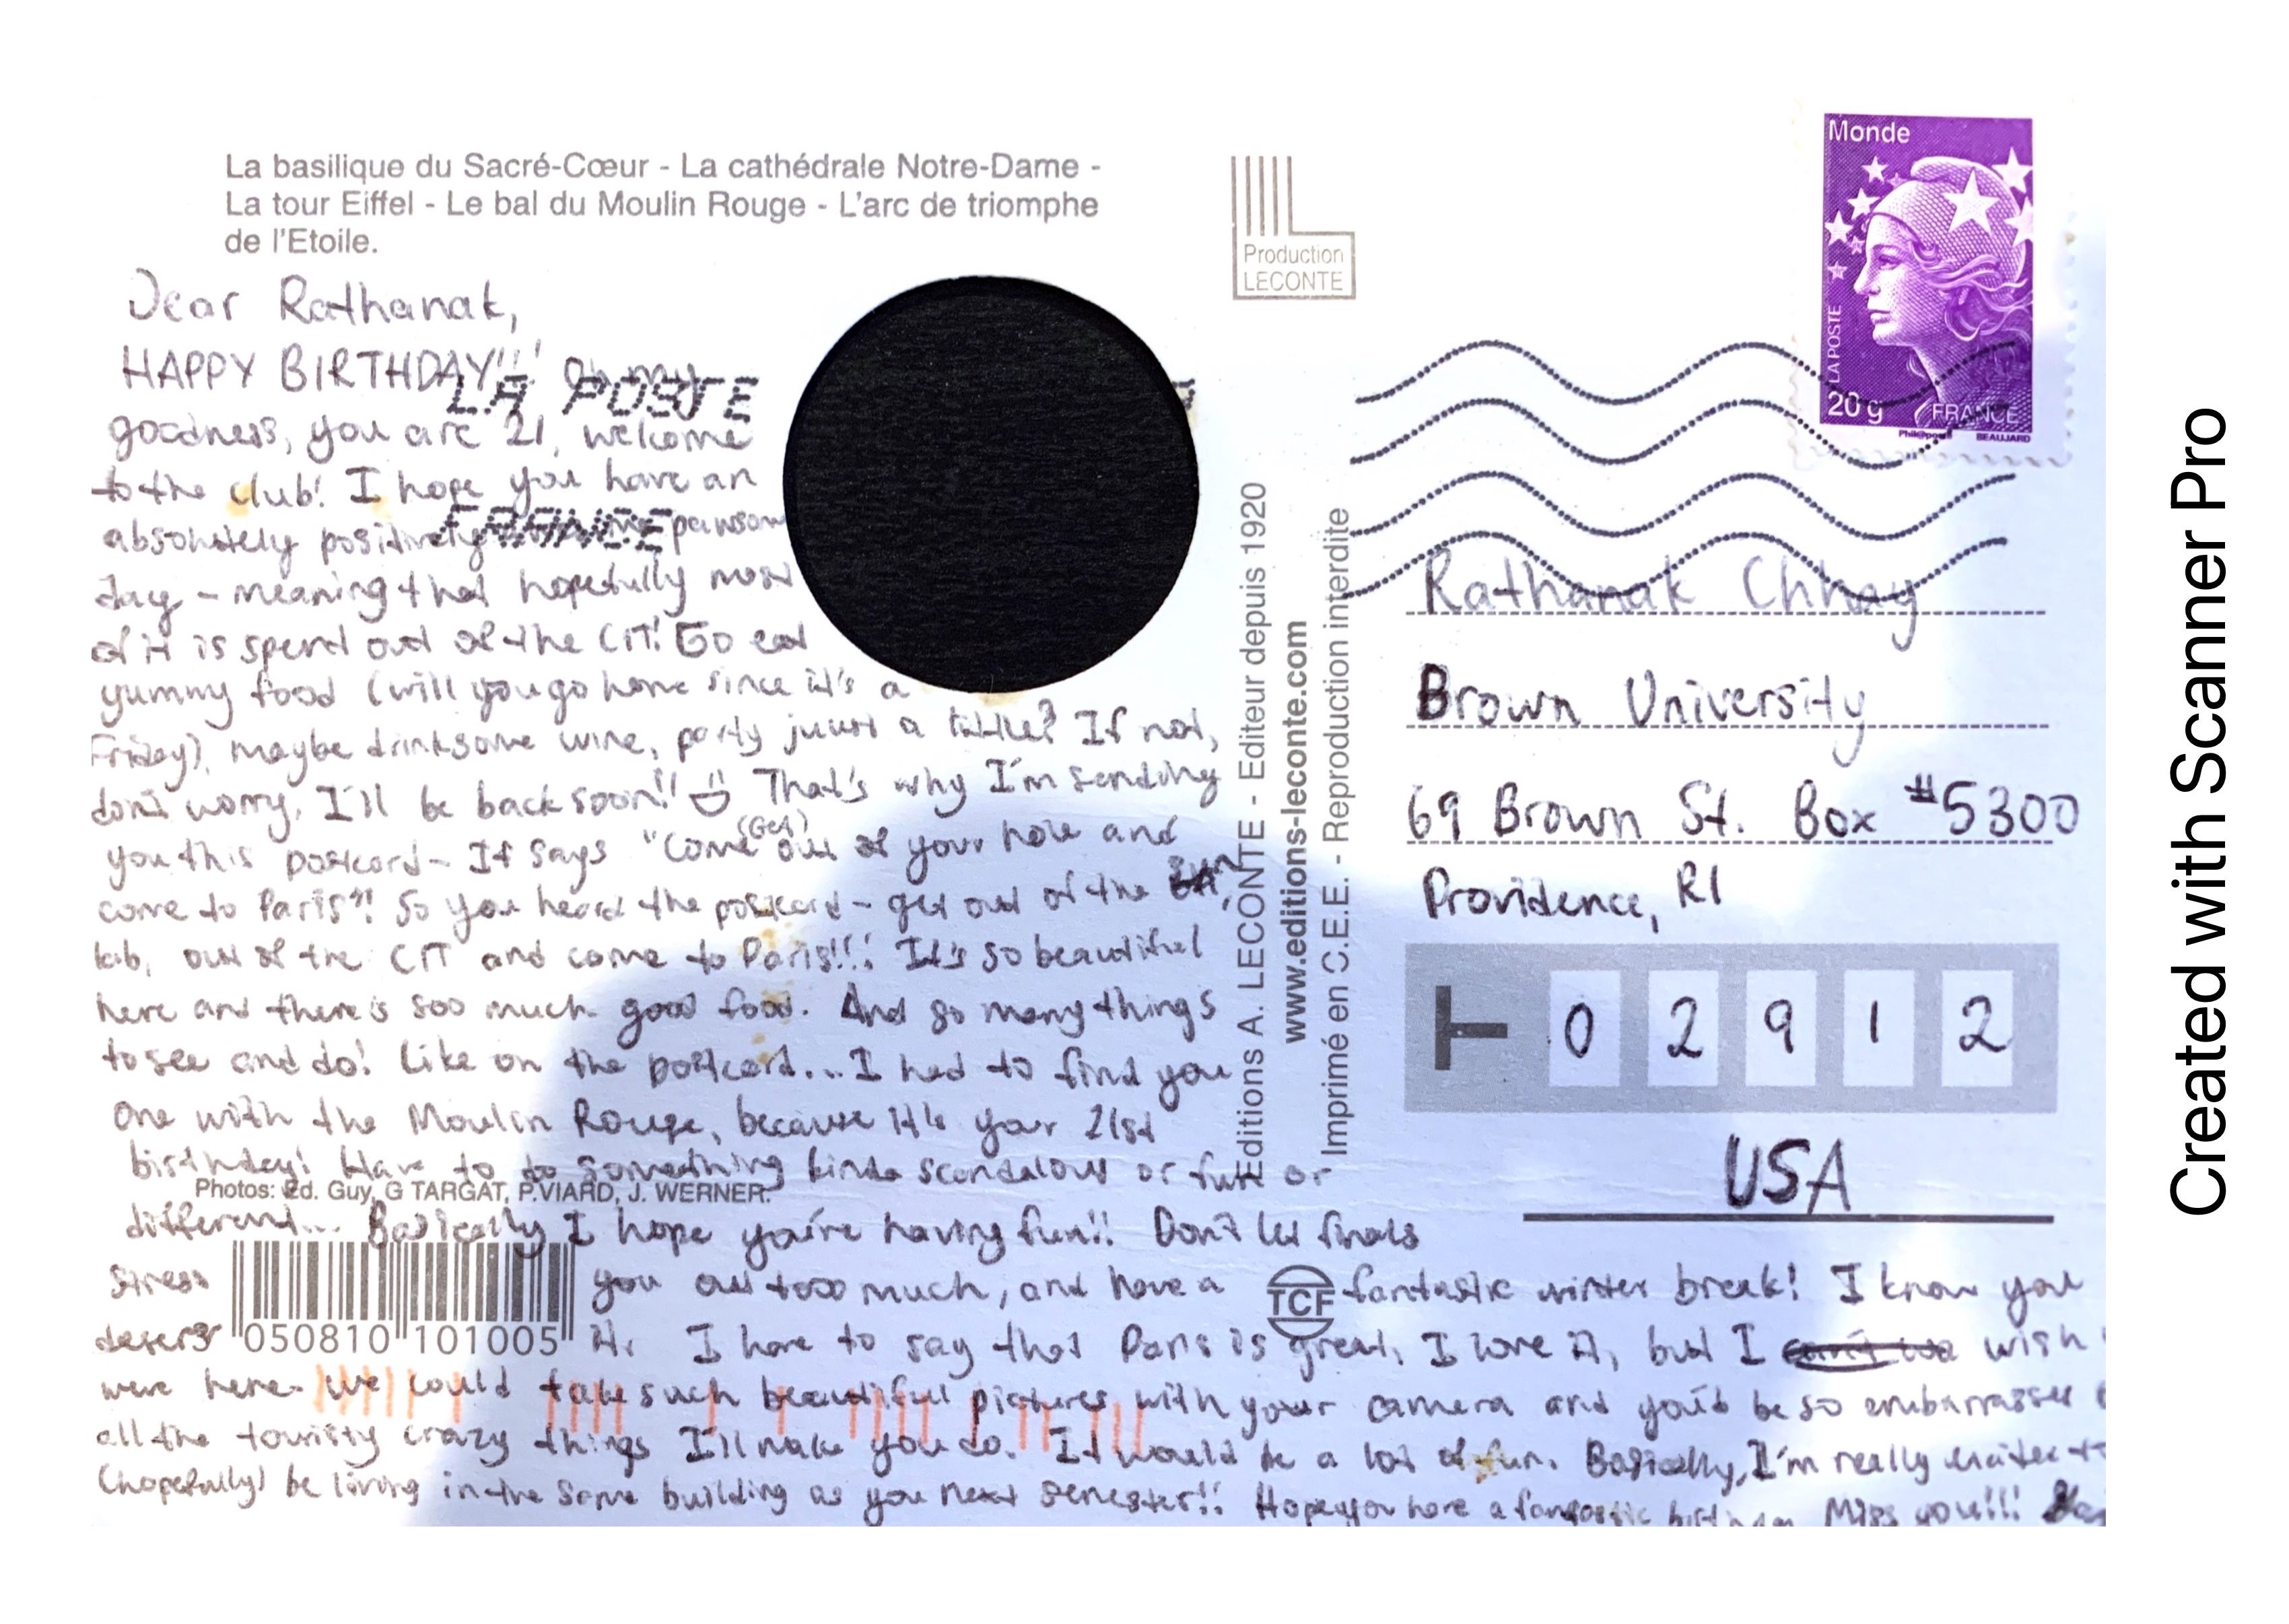 La basilique du Sacré-Cœur - La cathédrale Notre-Dame -
La tour Eiffel - Le bal du Moulin Rouge - L'arc de triomphe
de l'Etoile.
Production
LECONTE
Monde
LA POSTE
20 g
FRANCE
Phil@poste
BEAUJARD
Dear Rathanak,
HAPPY BIRTHDAY!!! Oh my
LA POSTE
goodness, you are 21, welcome
to the club! I hope you have an
FRANCE
absolutely positively pawsom
day - meaning that hopefully most
of it is spend out of the CIT! Go eat
yummy food (will you go home since it's a
Friday), maybe drink some wine, party juust a little? If not,
don't worry, I'll be back soon!! That's why I'm sending
you this postcard - It says "Come (Get) out of your hole and
come to Paris"! So you heard the postcard - get out of the
lab, out of the CIT and come to Paris!!! It's so beautiful
here and there is soo much good food. And so many things
to see and do! Like on the postcard... I had to find you
one with the Moulin Rouge, because it's your 21st
birthday! Have to do something kinda scandalous or fun or
Photos: Ed. Guy, G TARGAT, P.VIARD, J. WERNER.
different... Basically I hope you're having fun!! Don't let finals
stress you out tooo much, and have a fantastic winter break! I know you
TCF
deserve it. I have to say that Paris is great, I love it, but I wish
050810 101005
were here. We could take such beautiful pictures with your camera and you'd be so embarrassed
all the touristy crazy things I'll make you do. It would be a lot of fun. Basically, I'm really excited to
(hopefully) be living in the same building as you next semester!! Hope you have a fantastic birthday Miss you!!!
Editions A. LECONTE - Editeur depuis 1920
www.editions-leconte.com
Imprimé en C.E.E. - Reproduction interdite
Rathanak Chhay
Brown University
69 Brown St. Box #5300
Providence, RI
02912
USA
Created with Scanner Pro